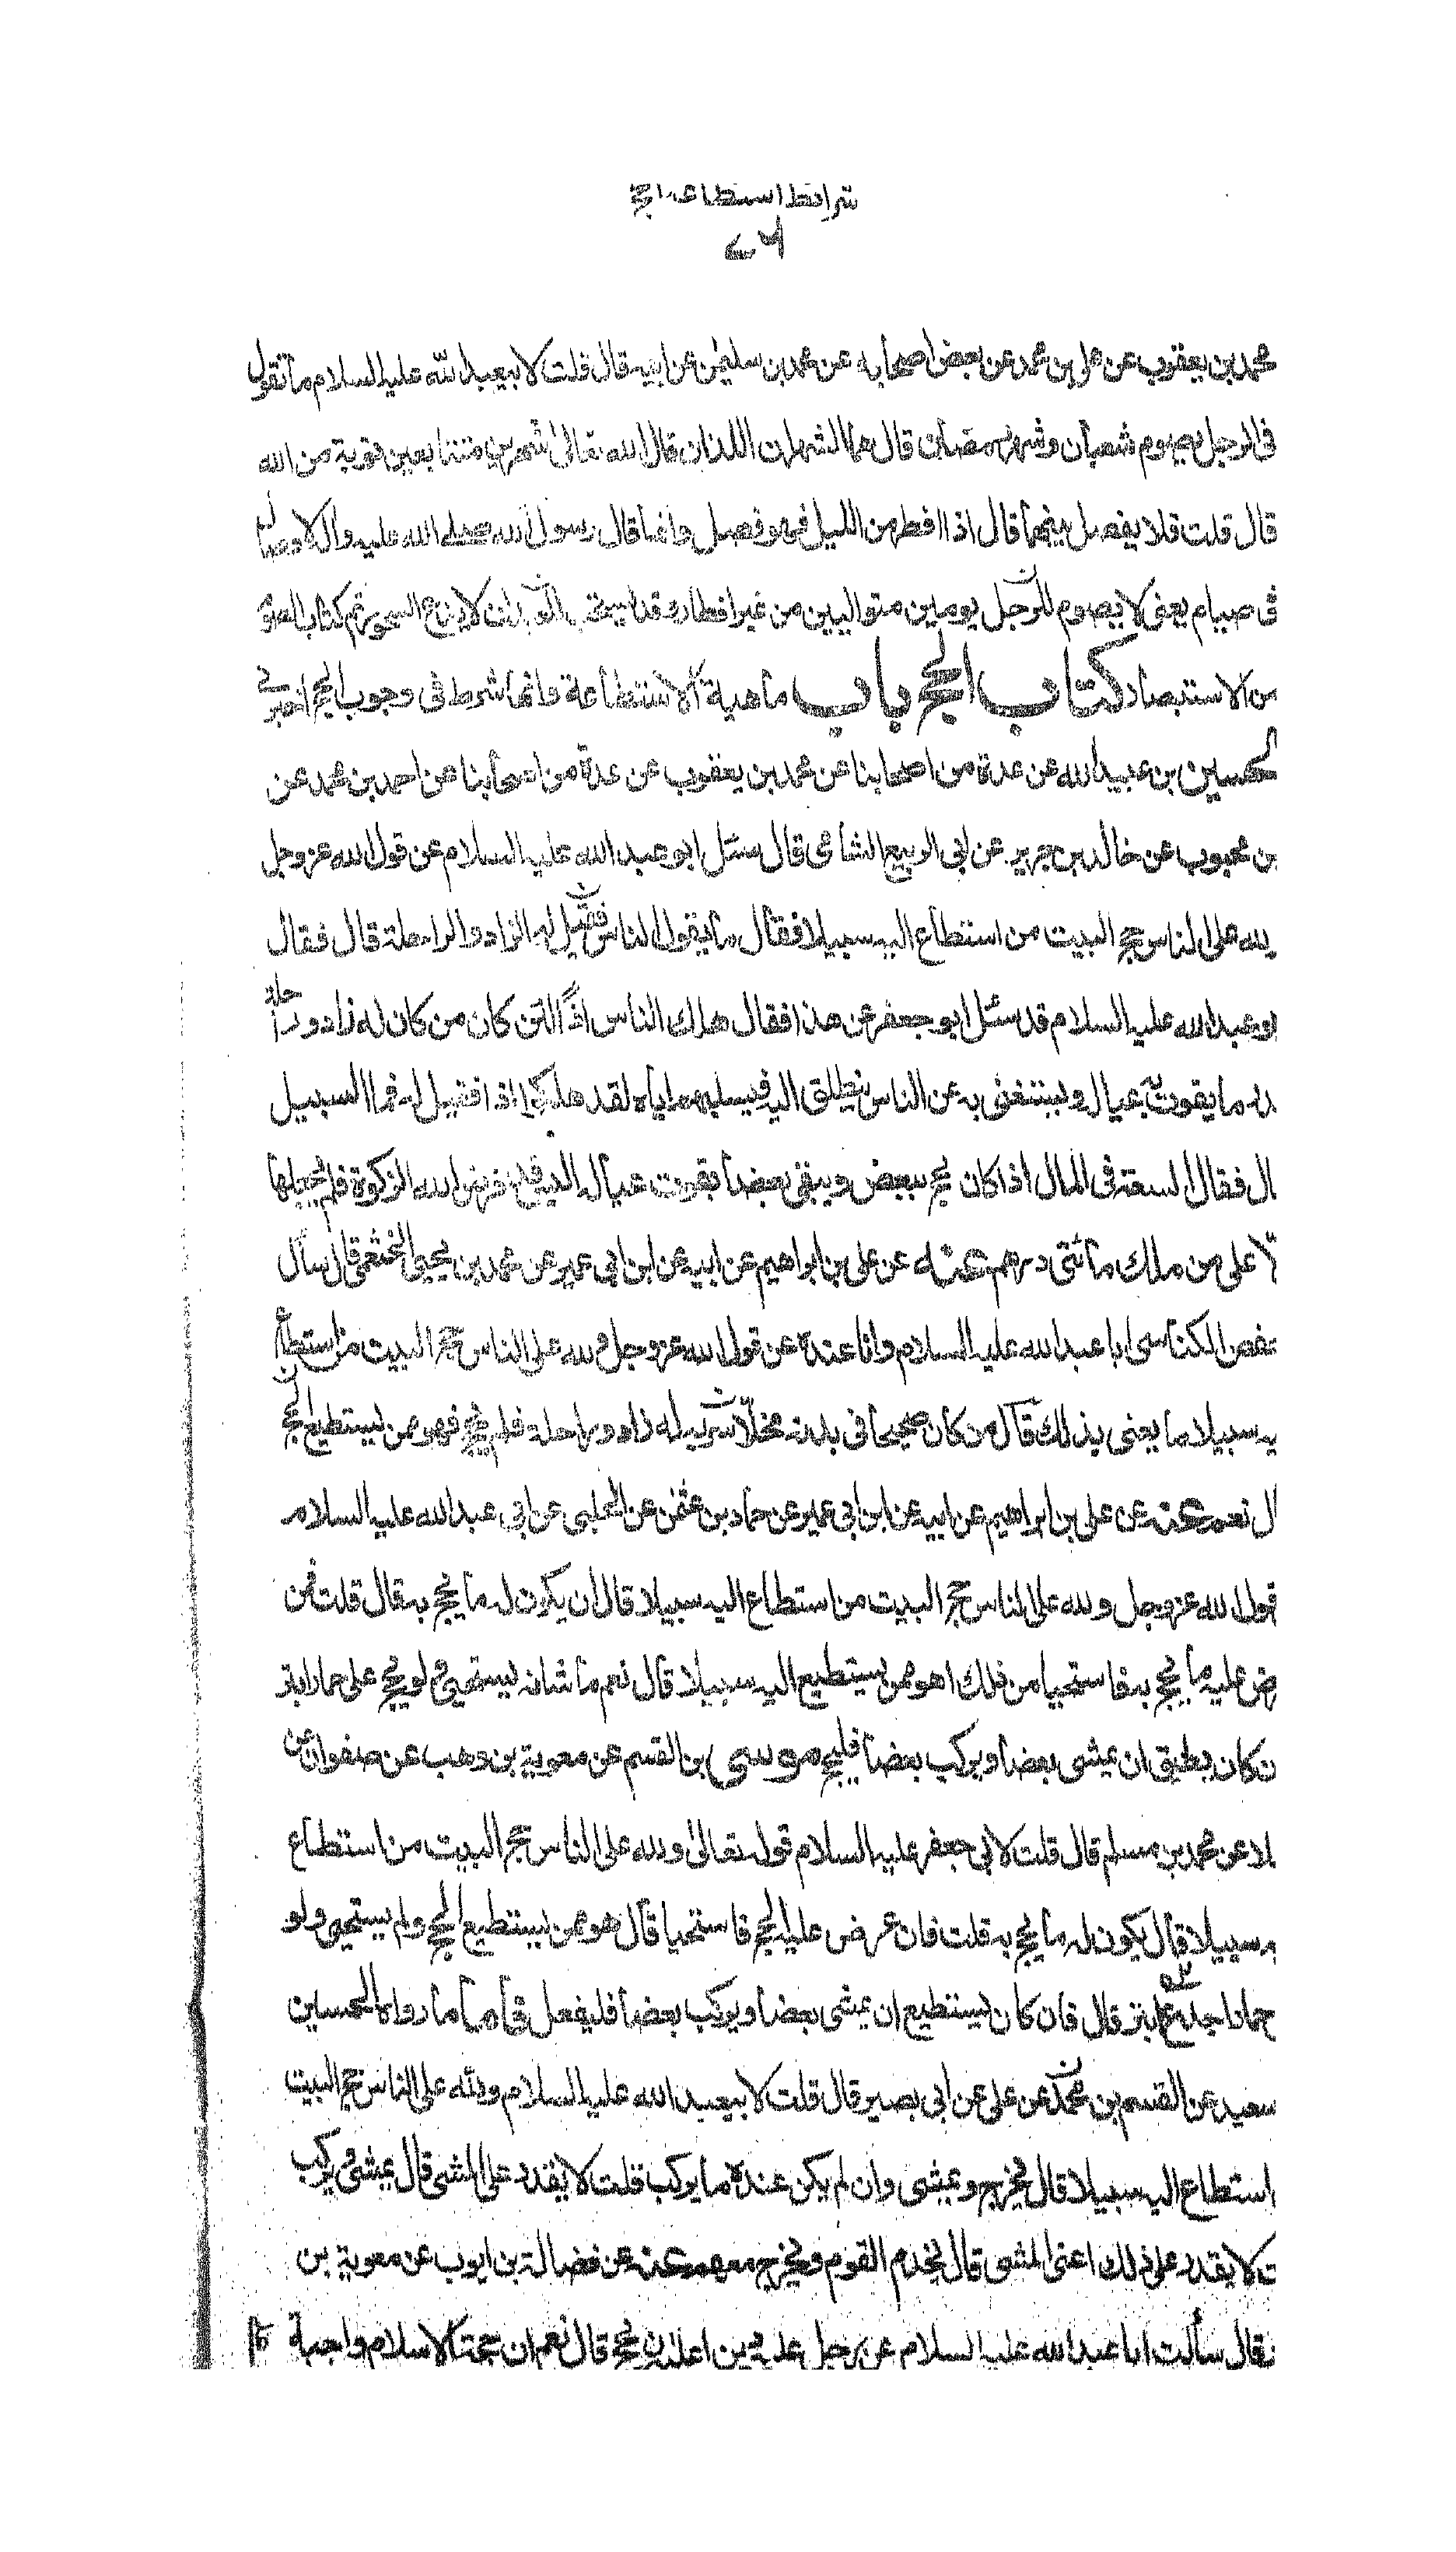 شرائط استطاعة الحج
محمد بن يعقوب عن على بن محمد عن بعض اصحابه عن محمد بن سليمن عن ابيه قال قلت لابيعبد الله عليه السلام ما تقول
فى الرجل يصوم شعبان وشهر رمضان قال هما الشهران اللذان قال الله تعالى شهرين متتابعين توبة من الله
قال قلت فلا يفصل بينهما قال اذا افطر من الليل فهو فصل وانما قال رسول الله صلى الله عليه واله لا وصال
فى صيام يعنى لا يصوم الرجل يومين متواليين من غير افطار وقد يستحب للعبد ان لا يدع السحور تم كتاب الصو
من الاستبصار كتاب الحج باب ماهية الاستطاعة وانها شرط فى وجوب الحج اخبرنى
الحسين بن عبيد الله عن عدة من اصحابنا عن محمد بن يعقوب عن عدة من اصحابنا عن احمد بن محمد عن
بن محبوب عن خالد بن جرير عن ابى الربيع الشامى قال سئل ابو عبد الله عليه السلام عن قول الله عز وجل
لله على الناس حج البيت من استطاع اليه سبيلا فقال ما يقول الناس فقيل له الزاد والراحلة قال فقال
بو عبد الله عليه السلام قد سئل ابو جعفر عن هذا فقال هلك الناس اذًا لئن كان من كان له زاد وراحلة
در ما يقوت به عياله ويستغنى به عن الناس ينطلق اليه فيسلبهم اياه لقد هلكوا اذا فقيل له فما السبيل
ال فقال السعة فى المال اذا كان يحج ببعض ويبقى بعضا يقوت عياله اليس قد فرض الله الزكوة فلم يجعلها
لا على من ملك مأتى درهم عنه عن على بن ابراهيم عن ابيه عن ابن ابى عمير عن محمد بن يحيى الخثعمى قال سأل
حفص الكناسى ابا عبد الله عليه السلام وانا عنده عن قول الله عز وجل ولله على الناس حج البيت من استطاع
يه سبيلا ما يعنى بذلك قال من كان صحيحا فى بدنه مخلّا سربه له زاد وراحلة فلم يحج فهو ممن يستطيع الحج
ال نعم عنه عن على بن ابراهيم عن ابيه عن ابن ابى عمير عن حماد بن عثمن عن الحلبى عن ابى عبد الله عليه السلام
قول الله عز وجل ولله على الناس حج البيت من استطاع اليه سبيلا قال ان يكون له ما يحج به قال قلت فمن
رض عليه ما يحج به فاستحيا من ذلك اهو ممن يستطيع اليه سبيلا قال نعم ما شانه يستحيى ولو يحج على حمار ابتر
ن كان يطيق ان يمشى بعضا ويركب بعضا فليحج موسى بن القسم عن معوية بن وهب عن صفوان عن
لا عن محمد بن مسلم قال قلت لابى جعفر عليه السلام قوله تعالى ولله على الناس حج البيت من استطاع
ه سبيلا قال يكون له ما يحج به قلت فان عرض عليه الحج فاستحيا قال هو ممن يستطيع الحج ولم يستحيى ولو
حمار اجدع ابتر قال فان كان يستطيع ان يمشى بعضا ويركب بعضا فليفعل فأما ما رواه الحسين
سعيد عن القسم بن محمد عن على عن ابى بصير قال قلت لابيعبد الله عليه السلام ولله على الناس حج البيت
استطاع اليه سبيلا قال يخرج ويمشى وان لم يكن عنده ما يركب قلت لا يقدر على المشى قال يمشى ويركب
ت لا يقدر على ذلك اعنى المشى قال يخدم القوم ويخرج معهم عنه عن فضالة بن ايوب عن معوية بن
ر قال سألت ابا عبد الله عليه السلام عن رجل عليه دين اعليه ان يحج قال نعم ان حجة الاسلام واجبة